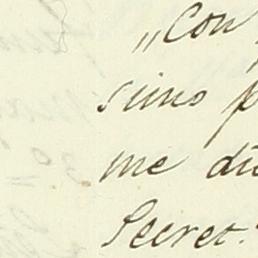 „Con
simo p
me di
Secret.